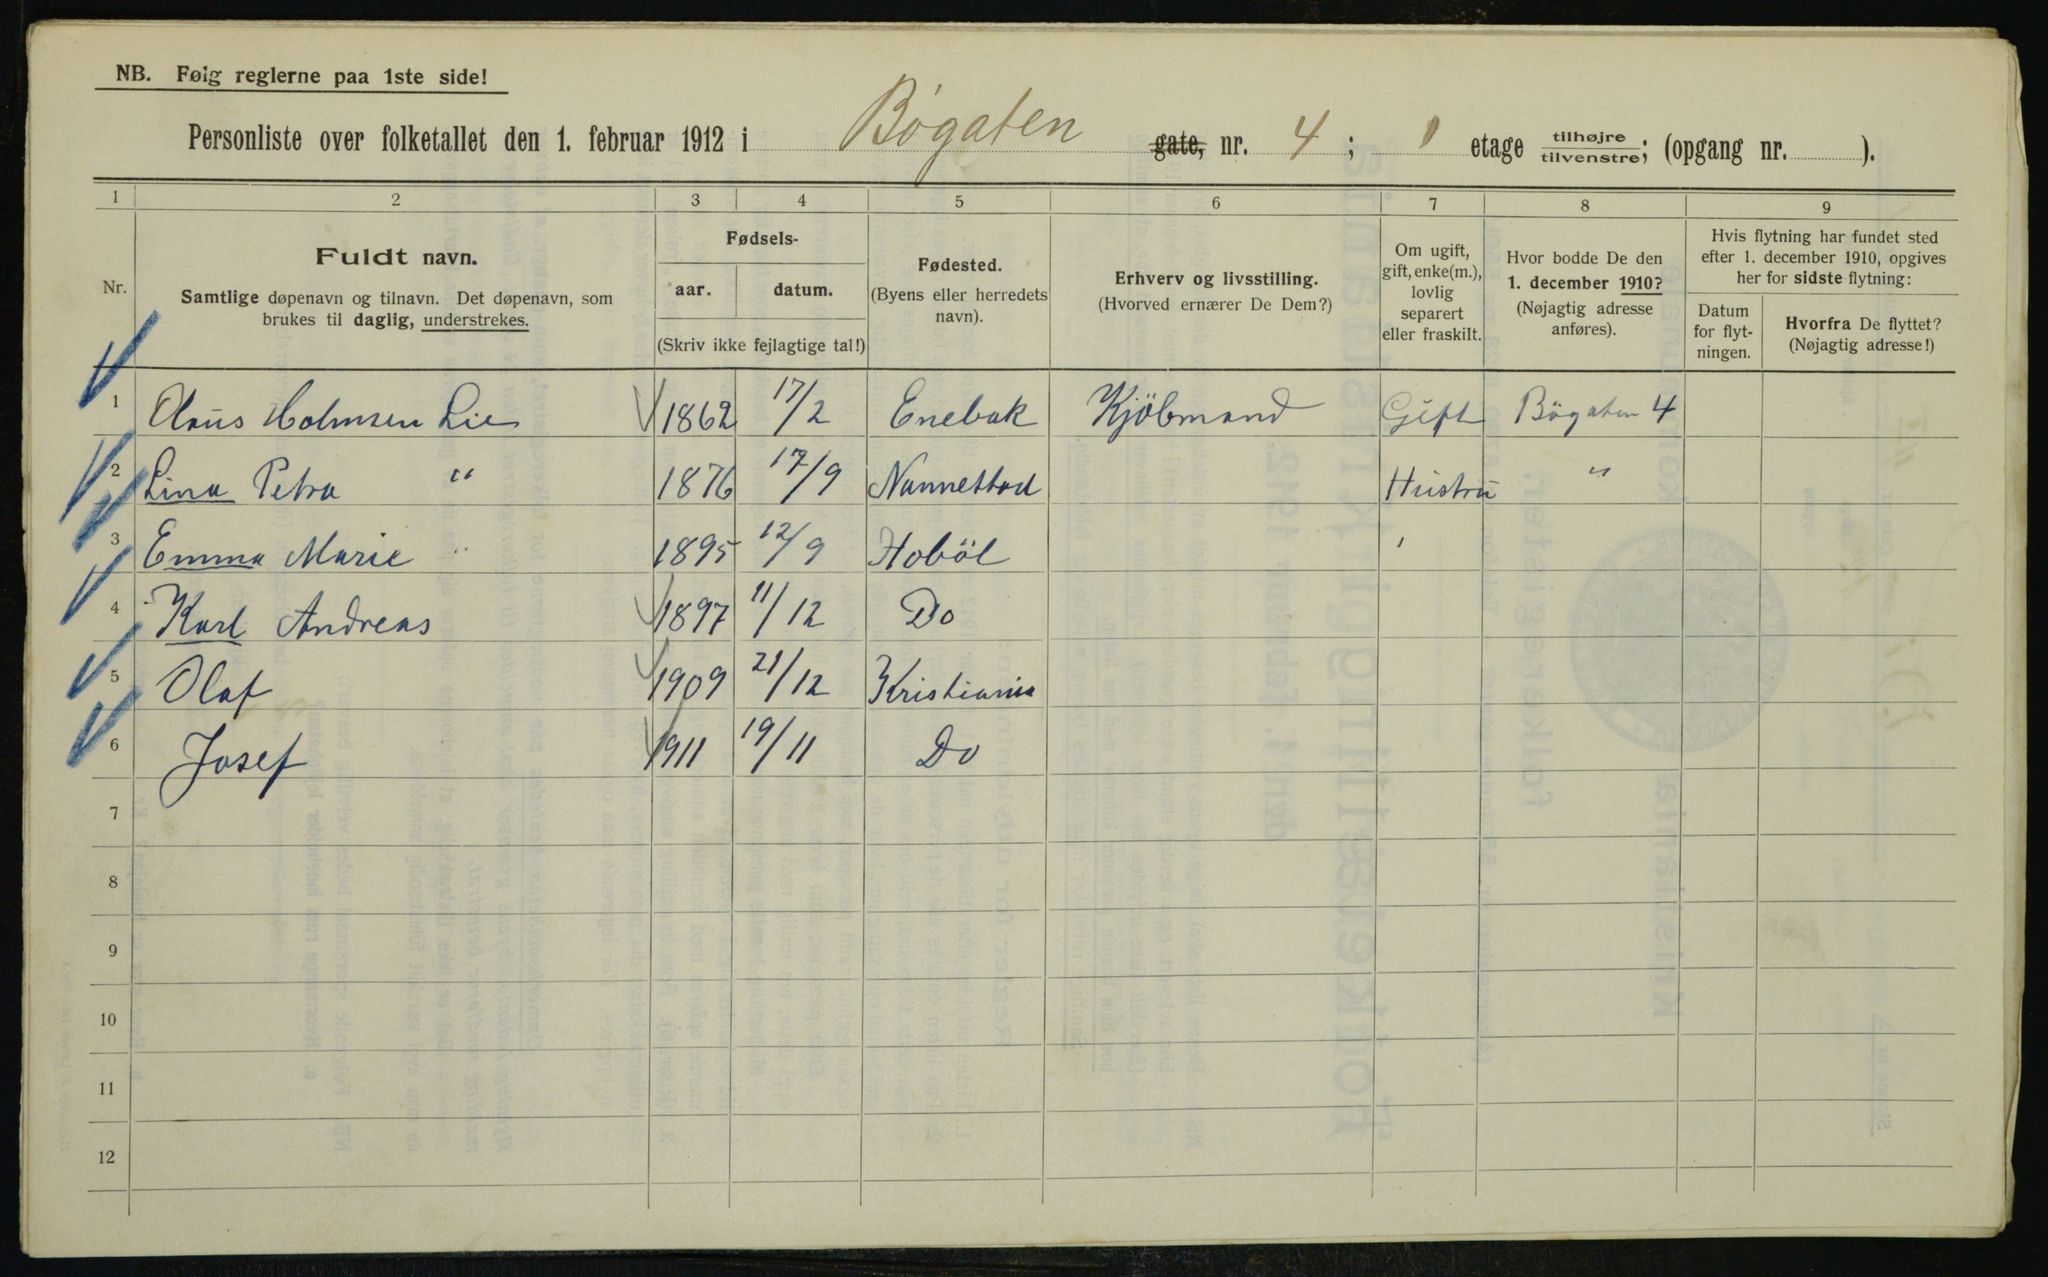 NB. Følg reglerne paa 1ste side!
Personliste over folketallet den 1. februar 1912 i Bøgaten gate, nr. 4; 1 etage tilhøjre tilvenstre; (opgang nr. ).
1 2 3 4 5 6 7 8 9
Nr.
Fuldt navn.
Samtlige døpenavn og tilnavn. Det døpenavn, som
brukes til daglig, understrekes.
Fødsels-
aar. datum.
(Skriv ikke fejlagtige tal!)
Fødested.
(Byens eller herredets
navn).
Erhverv og livsstilling.
(Hvorved ernærer De Dem?)
Om ugift,
gift, enke(m.),
lovlig
separert
eller fraskilt.
Hvor bodde De den
1. december 1910?
(Nøjagtig adresse
anføres).
Hvis flytning har fundet sted
efter 1. december 1910, opgives
her for sidste flytning:
Datum
for flyt-
ningen.
Hvorfra De flyttet?
(Nøjagtig adresse!)
1 Olaus Holmsen Lie 1862 17/2 Enebak Kjöbmand Gift Bögaten 4
2 Lina Petra " 1876 17/9 Nannestad Hustru "
3 Emma Marie " 1895 12/9 Haböl '
4 Karl Andreas 1897 11/12 Do
5 Olaf 1909 21/12 Kristiania
6 Josef 1911 19/11 Do
7
8
9
10
11
12